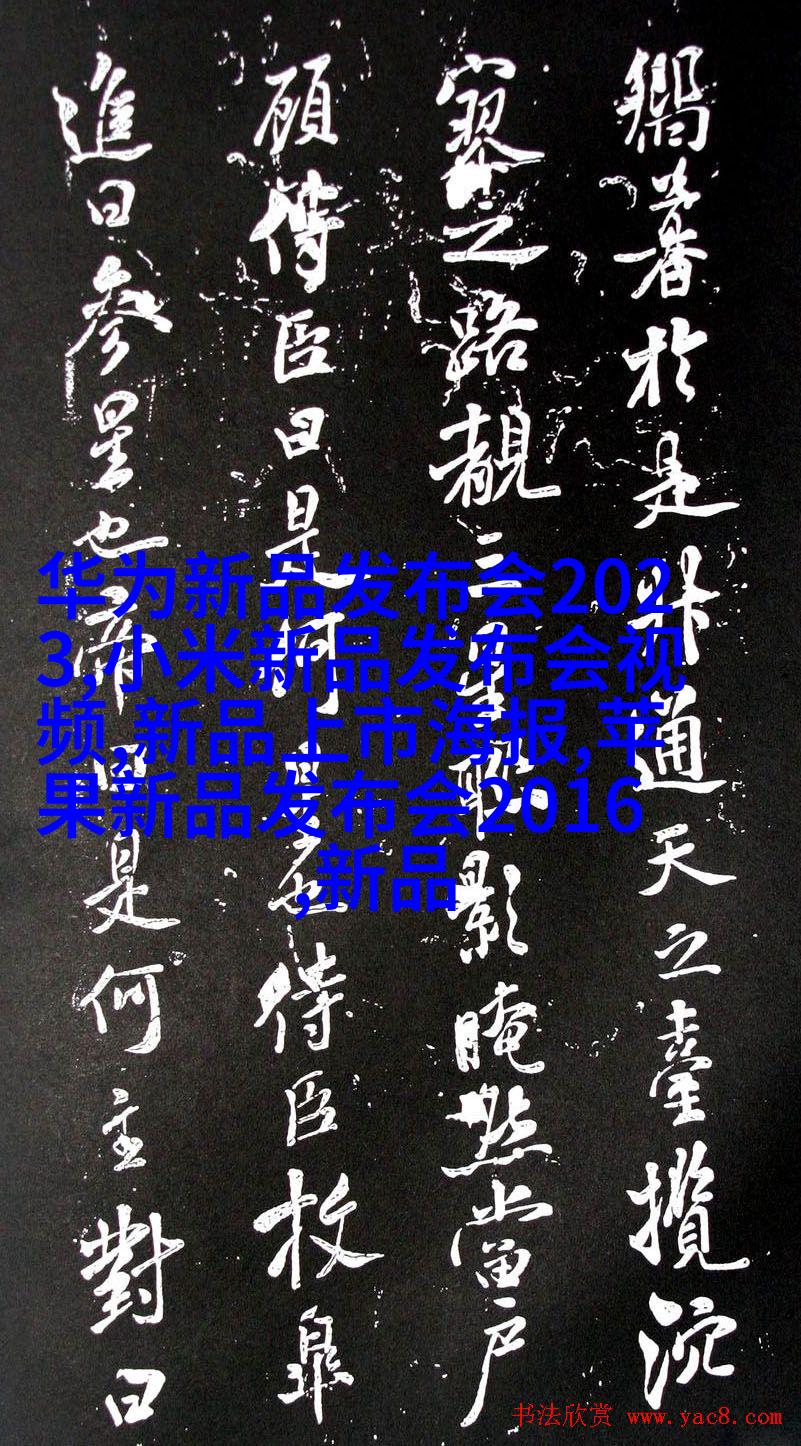 於是升通天之臺攬沉
寥之路覩三星聯影晻然當戶
顧侍臣曰是何星也侍臣枚皋
進曰參星也帝曰是何主對曰
华为新品发布会202
3,小米新品发布会视
频,新品上市海报,苹
果新品发布会2016
,新品
书法欣赏 www.yac8.com